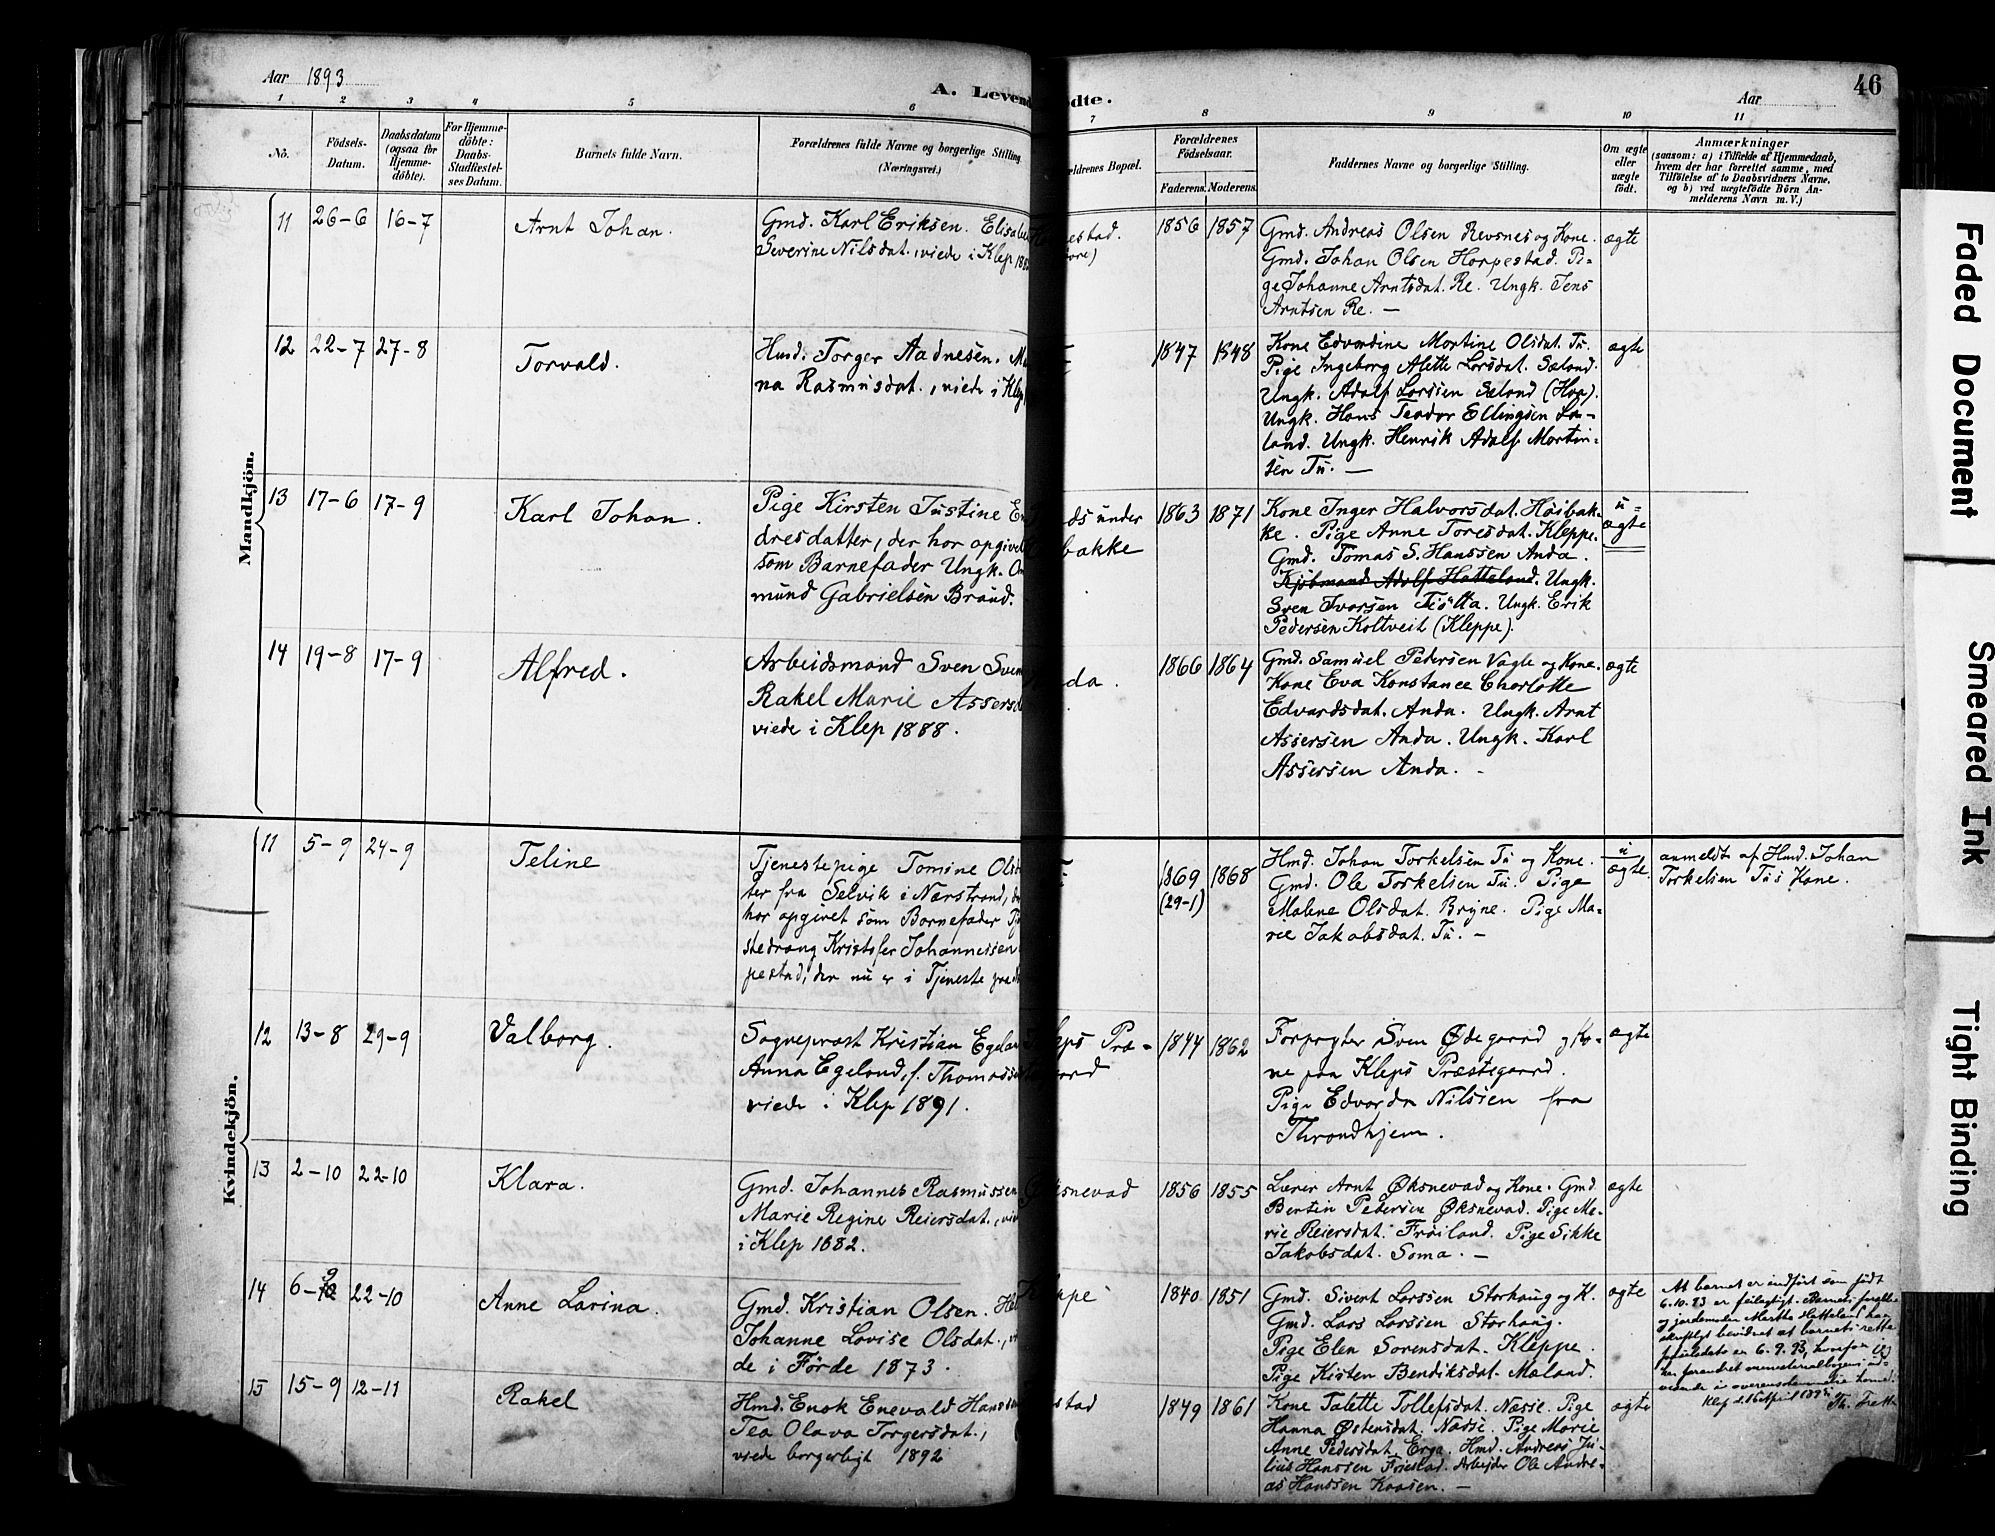 Aar 1893
A. Levend ødte.
Aar
46
1 2 3 4 5 6 7 8 9 10 11
No.
Fødsels-
Datum.
Daabsdatum
(ogsaa for
Hjemme-
døbte).
For Hjemme-
døbte:
Daabs-
Stadfæstel-
ses Datum.
Barnets fulde Navn.
Forældrenes fulde Navne og borgerlige Stilling
(Næringsvei.)
ældrenes Bopæl.
Forældrenes
Fødselsaar.
Faderens. Moderens.
Faddernes Navne og borgerlige Stilling.
Om ægte
eller
uægte
født.
Anmærkninger
(saasom: a) i Tilfælde af Hjemmedaab,
hvem der har forrettet samme, med
Tilføielse af to Daabsvidners Navne,
og b) ved uægtefødte Børn An-
melderens Navn m. V.)
Mandkjön.
11 26-6 16-7 Arnt Johan.
Gmd. Karl Eriksen. Elisabe
Severine Nilsdat., viede i Klep 188
estad.
ore)
1856 1857
Gmd. Andreas Olsen Revsnes og Kone.
Gmd. Johan Olsen Horpestad. Pi-
ge Johanne Arntsdat. Re. Ungk. Jens
Arntsen Re. —
ægte
12 22-7 27-8 Torvald.
Husd. Torger Aadnesen. Ma
na Rasmusdat., viede i Klep
1847 1848
Kone Edvardine Martine Olsdat. Tu.
Pige Ingeborg Alette Larsdat. Sæland.
Ungk. Adolf Larssen Sæland (Haa).
Ungk. Hans Teodor Ellingsen La-
land. Ungk. Henrik Adolf Martin-
sen Tu. —
ægte
13 17-6 17-9 Karl Johan.
Pige Kirsten Justine En
dresdatter, der har opgivet
som Barnefader Ungk. Om
mund Gabrielsen Braud.
ds under
bakke
1863 1871
Kone Inger Halvorsdat. Høibak-
ke. Pige Anne Toresdat. Kleppe.
Gmd. Tomas S. Hanssen Anda.
Kjøbmand Adolf Hatteland. Ungk.
Sven Ivarsen Tjøtta. Ungk. Erik
Pedersen Koltveit (Kleppe).
u-
ægte
14 19-8 17-9 Alfred.
Arbeidsmand Sven Sven
Rakel Marie Assersd
viede i Klep 1888.
da.
1866 1864
Gmd. Samuel Pedersen Vagle og Kone.
Kone Eva Konstance Charlotte
Edvardsdat. Anda. Ungk. Arnt
Assersen Anda. Ungk. Karl
Assersen Anda. -
ægte
Kvindekjön.
11 5-9 24-9 Teline
Tjenestepige Tomine Olsd
ter fra Selvik i Nærstrand, de
har opgivet som Barnefader Tj
stedrang Kristofer Johannessen
pestad, der nu er i Tjeneste paa
1869 1868
(29-1)
Hmd. Johan Torkelsen Tu og Kone.
Gmd. Ole Torkelsen Tu. Pige
Malene Olsdat. Bryne. Pige Ma-
rie Jakobsdat. Tu. —
u
ægte
anmeldt af Hmd. Johan
Torkelsen Tus Kone.
12 13-8 29-9 Valborg.
Sogneprost Kristian Egelan
Anna Egeland, f. Thomassen
viede i Klep 1891.
leps Præ-
aard
1844 1862
Forpagter Sven Ødegaard og Ko-
ne paa Kleps Præstegaard.
Pige Edvarda Nilsien fra
Throndhjem.
ægte
13 2-10 22-10 Klara.
Gmd. Johannes Rasmussen
Marie Regine Reiersdat., vie
i Klep 1882.
ksnevad
1856 1855
Lærer Arnt Øksnevad og Kone. Gmd
Bertin Pedersen Øksnevad. Pige Ma-
rie Reiersdat. Frøiland. Pige Sikke
Jakobsdat. Soma. —
ægte
14 6-10 9 22-10 Anne Larina.
Gmd. Kristian Olsen. Hel
Johanne Lovise Olsdat., vi
de i Førde 1873.
leppe
1840 1851
Gmd. Sivert Larssen Storhaug og K.
Gmd. Lars Larssen Storhaug.
Pige Elen Sorensdat. Kleppe.
Pige Kisten Bendiksdat. Mæland.
ægte
At barnet er indført som født
6.10.93 er feilagtigt. Barnets forældre
og jordemoder Martha Hatteland har
skriftligt bevidnet at barnets rette
fødselsdato er 6.9.93, hvorfor jeg
har forandret ministerialbogens ud-
visende i overensstemmelse hermed.
Klep d. 16 April 
Th. 
15 15-9 12-11 Rakel
Hmd. Enok Enevald Hanssen
Tea Olava Torgersdat.,
viede borgerligt 1892
stad
1849 1861
Kone Talette Tollefsdat. Næsse. Pige
Hanna Østensdat. Næsse. Pige Marie
Anne Pedersdat. Erga. Hmd. Andreas Ju-
lius Hanssen Friestad. Arbejder Ole Andre-
as Hanssen Kaasen. —
ægte
Faded Document
Smeared Ink
Tight Binding